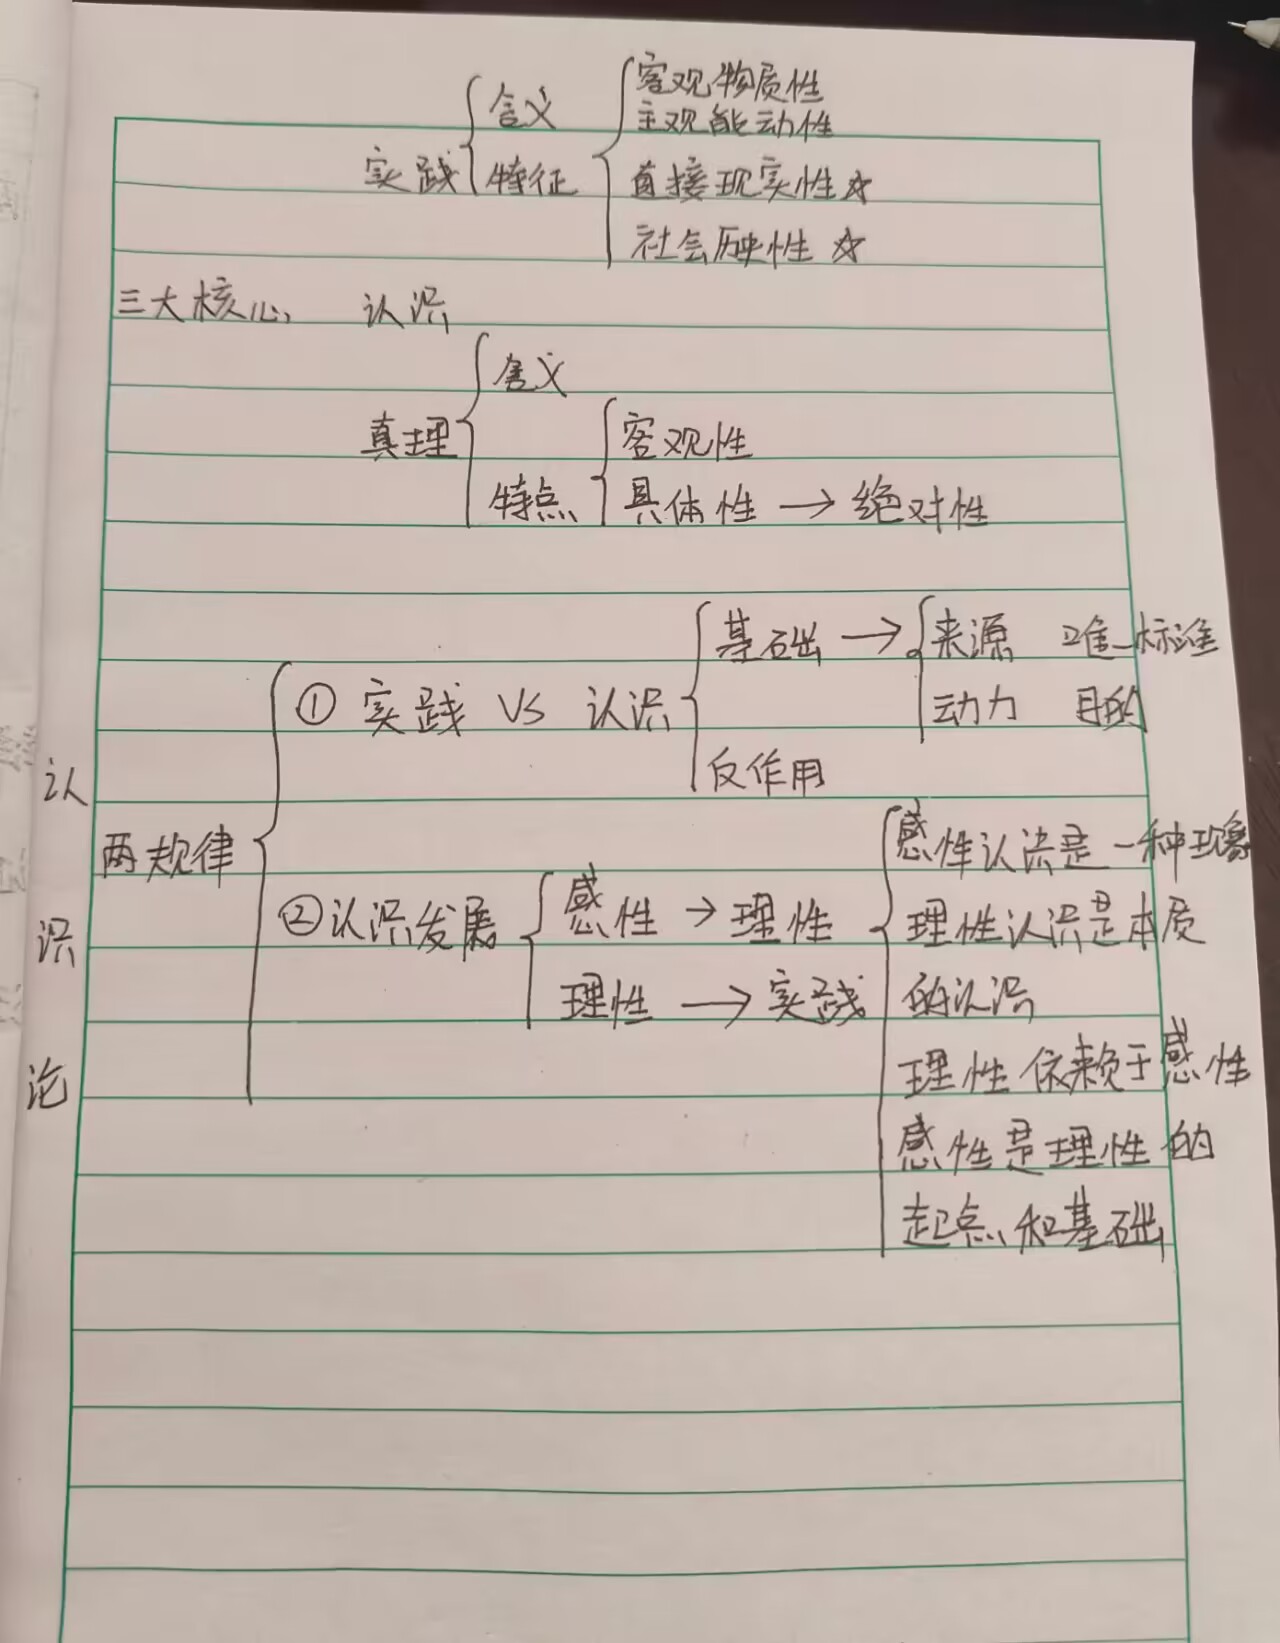 含义
客观物质性
主观能动性
实践 特征 直接现实性☆
社会历史性 ☆
三大核心 认识
含义
真理 客观性
特点 具体性 → 绝对性
基础 → 来源 唯一标准
① 实践 VS 认识 动力 目的
反作用
认识论
两规律
感性认识是一种现象
②认识发展 感性 → 理性 理性认识是本质
理性 → 实践 的认识
理性依赖于感性
感性是理性的
起点和基础